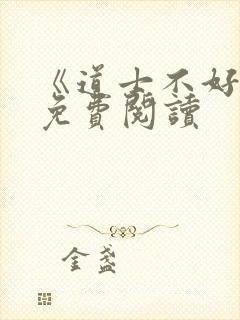 《道士不好
免費閱讀
金盏